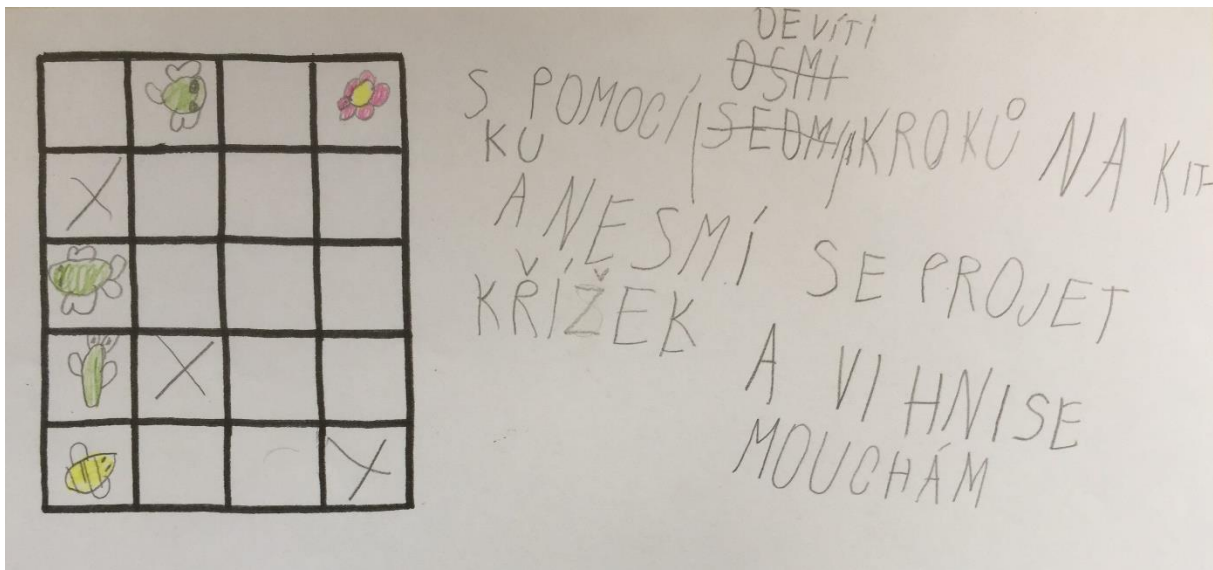 DEVÍTI
OSMI
S POMOCÍ SEDMI KROKŮ NA KIT-
KU
A NESMÍ SE PROJET
KŘÍŽEK
A VI HNISE
MOUCHÁM